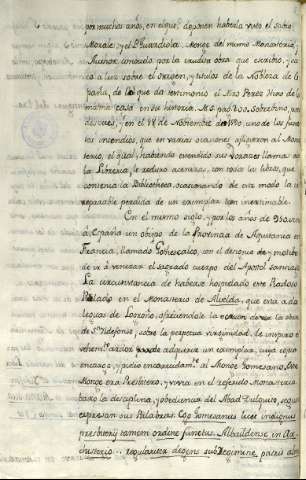 por muchos años, en el que deponen haberla visto el sabio
Morales, y el Guardiola, Monge del mismo Monasterio,
Autor conocido por la erudita obra que escribio, y sa
co a luz sobre el origen, y titulos de la Nobleza de Es
paña, de lo que da testimonio el Mro Perez Hijo de la
misma casa en su historia M.S. pag. 200. Sobrevino,
despues, en el de Noviembre de uno de los funes
tos incendios, que en varias ocasiones afligieron al Monas
terio, el qual, habiendo extendido sus voraces llamas a
la Libreria, la reduxo a cenizas, con todos los libros, que
contenia la Bibliotheca, ocasionando de este modo la ir
reparable perdida de un exemplar tan inestimable.
En el mismo siglo, y por los años de
a España un obispo de la Provincia de Aquitania en
Francia, llamado Gothescalco, con el designio, y motivo
de ir á venerar el sagrado cuerpo del Apostol Santiago.
La circunstancia de haberse hospedado este Piadoso
Prelado en el Monasterio de Albelda, que está a dos
leguas de Logroño, ofreciendole la ocasion de ver la obra
de Sn Ildefonso, sobre la perpetua virginidad, le inspiro el
vehemte ardor de adquirir un exemplar, cuya
encargo, y puso al Monge Gomesano. Este
Monge era Presbitero, y vivia en el referido Monasterio
baxo la disciplina, y obediencia del Abad Dulquito, segun
expresan sus Palabras: Ego Gomesanus licet indignus
presbiterij tamen ordine functus, Albaildense in Ar
chisterio regulariter degens sub Regimine patris almi